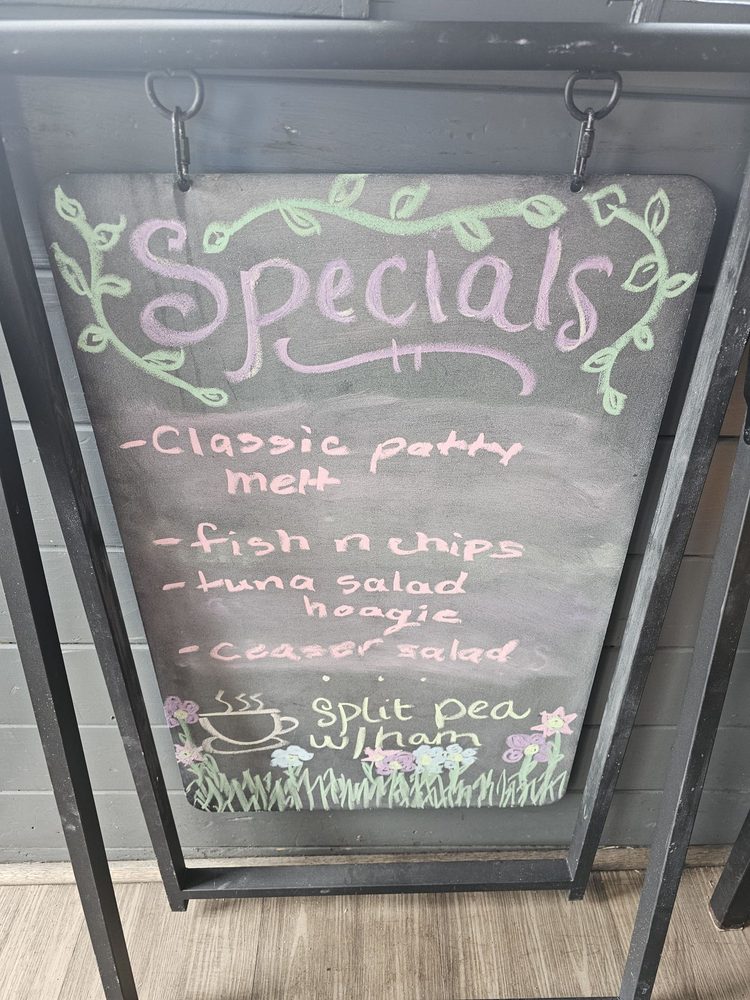 Specials
- Classic patty
melt
- fish n chips
- tuna salad
hoagie
- ceaser salad
split pea
w/ham